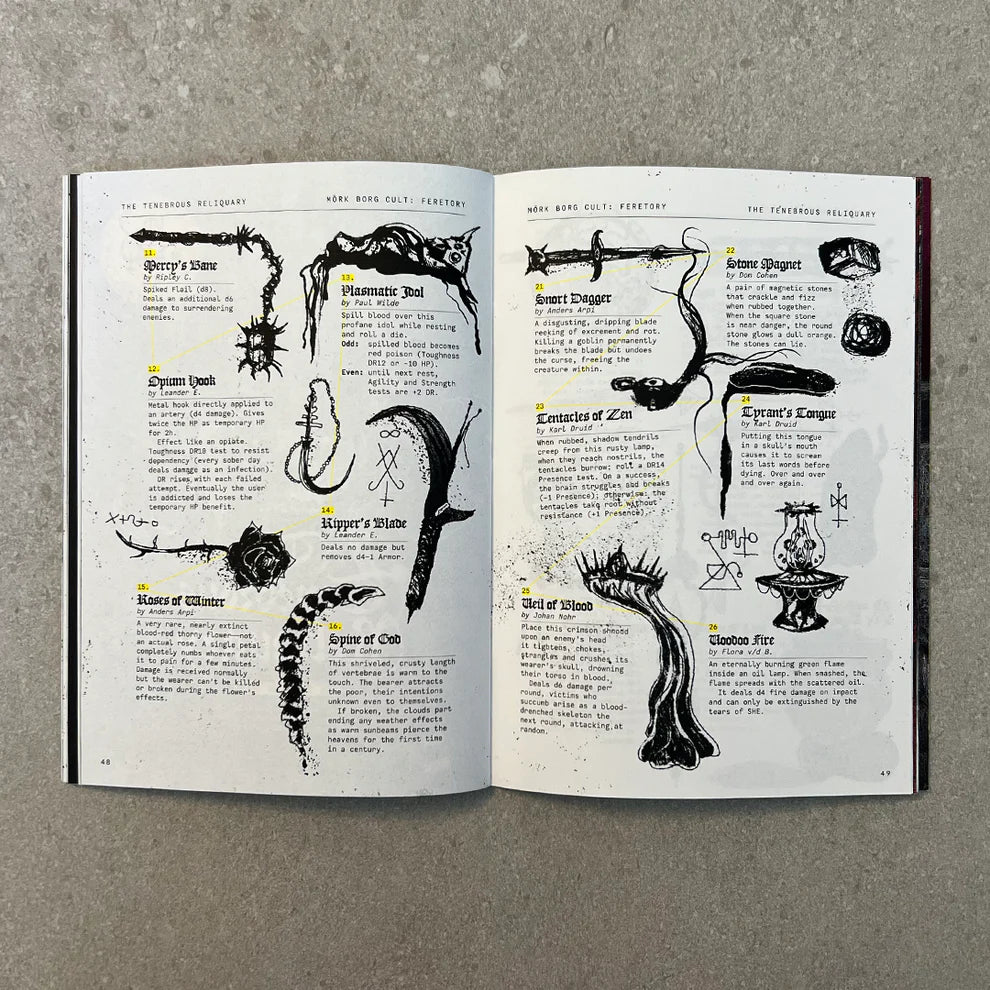 THE TENEBROUS RELIQUARY
MÖRK BORG CULT: FERETORY
11.
Mercy's Bane
by Ripley C.
Spiked Flail (d8).
Deals an additional d6
damage to surrendering
enemies.
12.
Opium Hook
by Leander E.
Metal hook directly applied to
an artery (d4 damage). Gives
twice the HP as temporary HP
for 2h.
Effect like an opiate.
Toughness DR10 test to resist
dependency (every sober day
deals damage as an infection).
DR rises with each failed
attempt. Eventually the user
is addicted and loses the
temporary HP benefit.
13.
Plasmatic Idol
by Paul Wilde
Spill blood over this
profane idol while resting
and roll a die.
Odd: spilled blood becomes
red poison (Toughness
DR12 or -10 HP).
Even: until next rest,
Agility and Strength
tests are +2 DR.
14.
Ripper's Blade
by Leander E.
Deals no damage but
removes d4-1 Armor.
15.
Roses of Winter
by Anders Arpi
A very rare, nearly extinct
blood-red thorny flower—not
an actual rose. A single petal
completely numbs whoever eats
it to pain for a few minutes.
Damage is received normally
but the wearer can't be killed
or broken during the flower's
effects.
16.
Spine of God
by Dom Cohen
This shriveled, crusty length
of vertebrae is warm to the
touch. The bearer attracts
the poor, their intentions
unknown even to themselves.
If broken, the clouds part
ending any weather effects
as warm sunbeams pierce the
heavens for the first time
in a century.
48
MÖRK BORG CULT: FERETORY
THE TENEBROUS RELIQUARY
21
Snort Dagger
by Anders Arpi
A disgusting, dripping blade
reeking of excrement and rot.
Killing a goblin permanently
breaks the blade but undoes
the curse, freeing the
creature within.
22
Stone Magnet
by Dom Cohen
A pair of magnetic stones
that crackle and fizz
when rubbed together.
When the square stone
is near danger, the round
stone glows a dull orange.
The stones can lie.
23
Tentacles of Zen
by Karl Druid
When rubbed, shadow tendrils
creep from this rusty lamp,
when they reach nostrils, the
tentacles burrow; roll a DR14
Presence test. On a success,
the brain struggles and breaks
(-1 Presence); otherwise, the
tentacles take root without
resistance (+1 Presence).
24
Tyrant's Tongue
by Karl Druid
Putting this tongue
in a skull's mouth
causes it to scream
its last words before
dying. Over and over
and over again.
25
Veil of Blood
by Johan Nohr
Place this crimson shroud
upon an enemy's head
it tightens, chokes,
strangles and crushes its
wearer's skull, drowning
their torso in blood.
Deals d6 damage per
round, victims who
succumb arise as a blood-
drenched skeleton the
next round, attacking at
random.
26
Voodoo Fire
by Flora v/d B.
An eternally burning green flame
inside an oil lamp. When smashed, the
flame spreads with the scattered oil.
It deals d4 fire damage on impact
and can only be extinguished by the
tears of SHE.
49